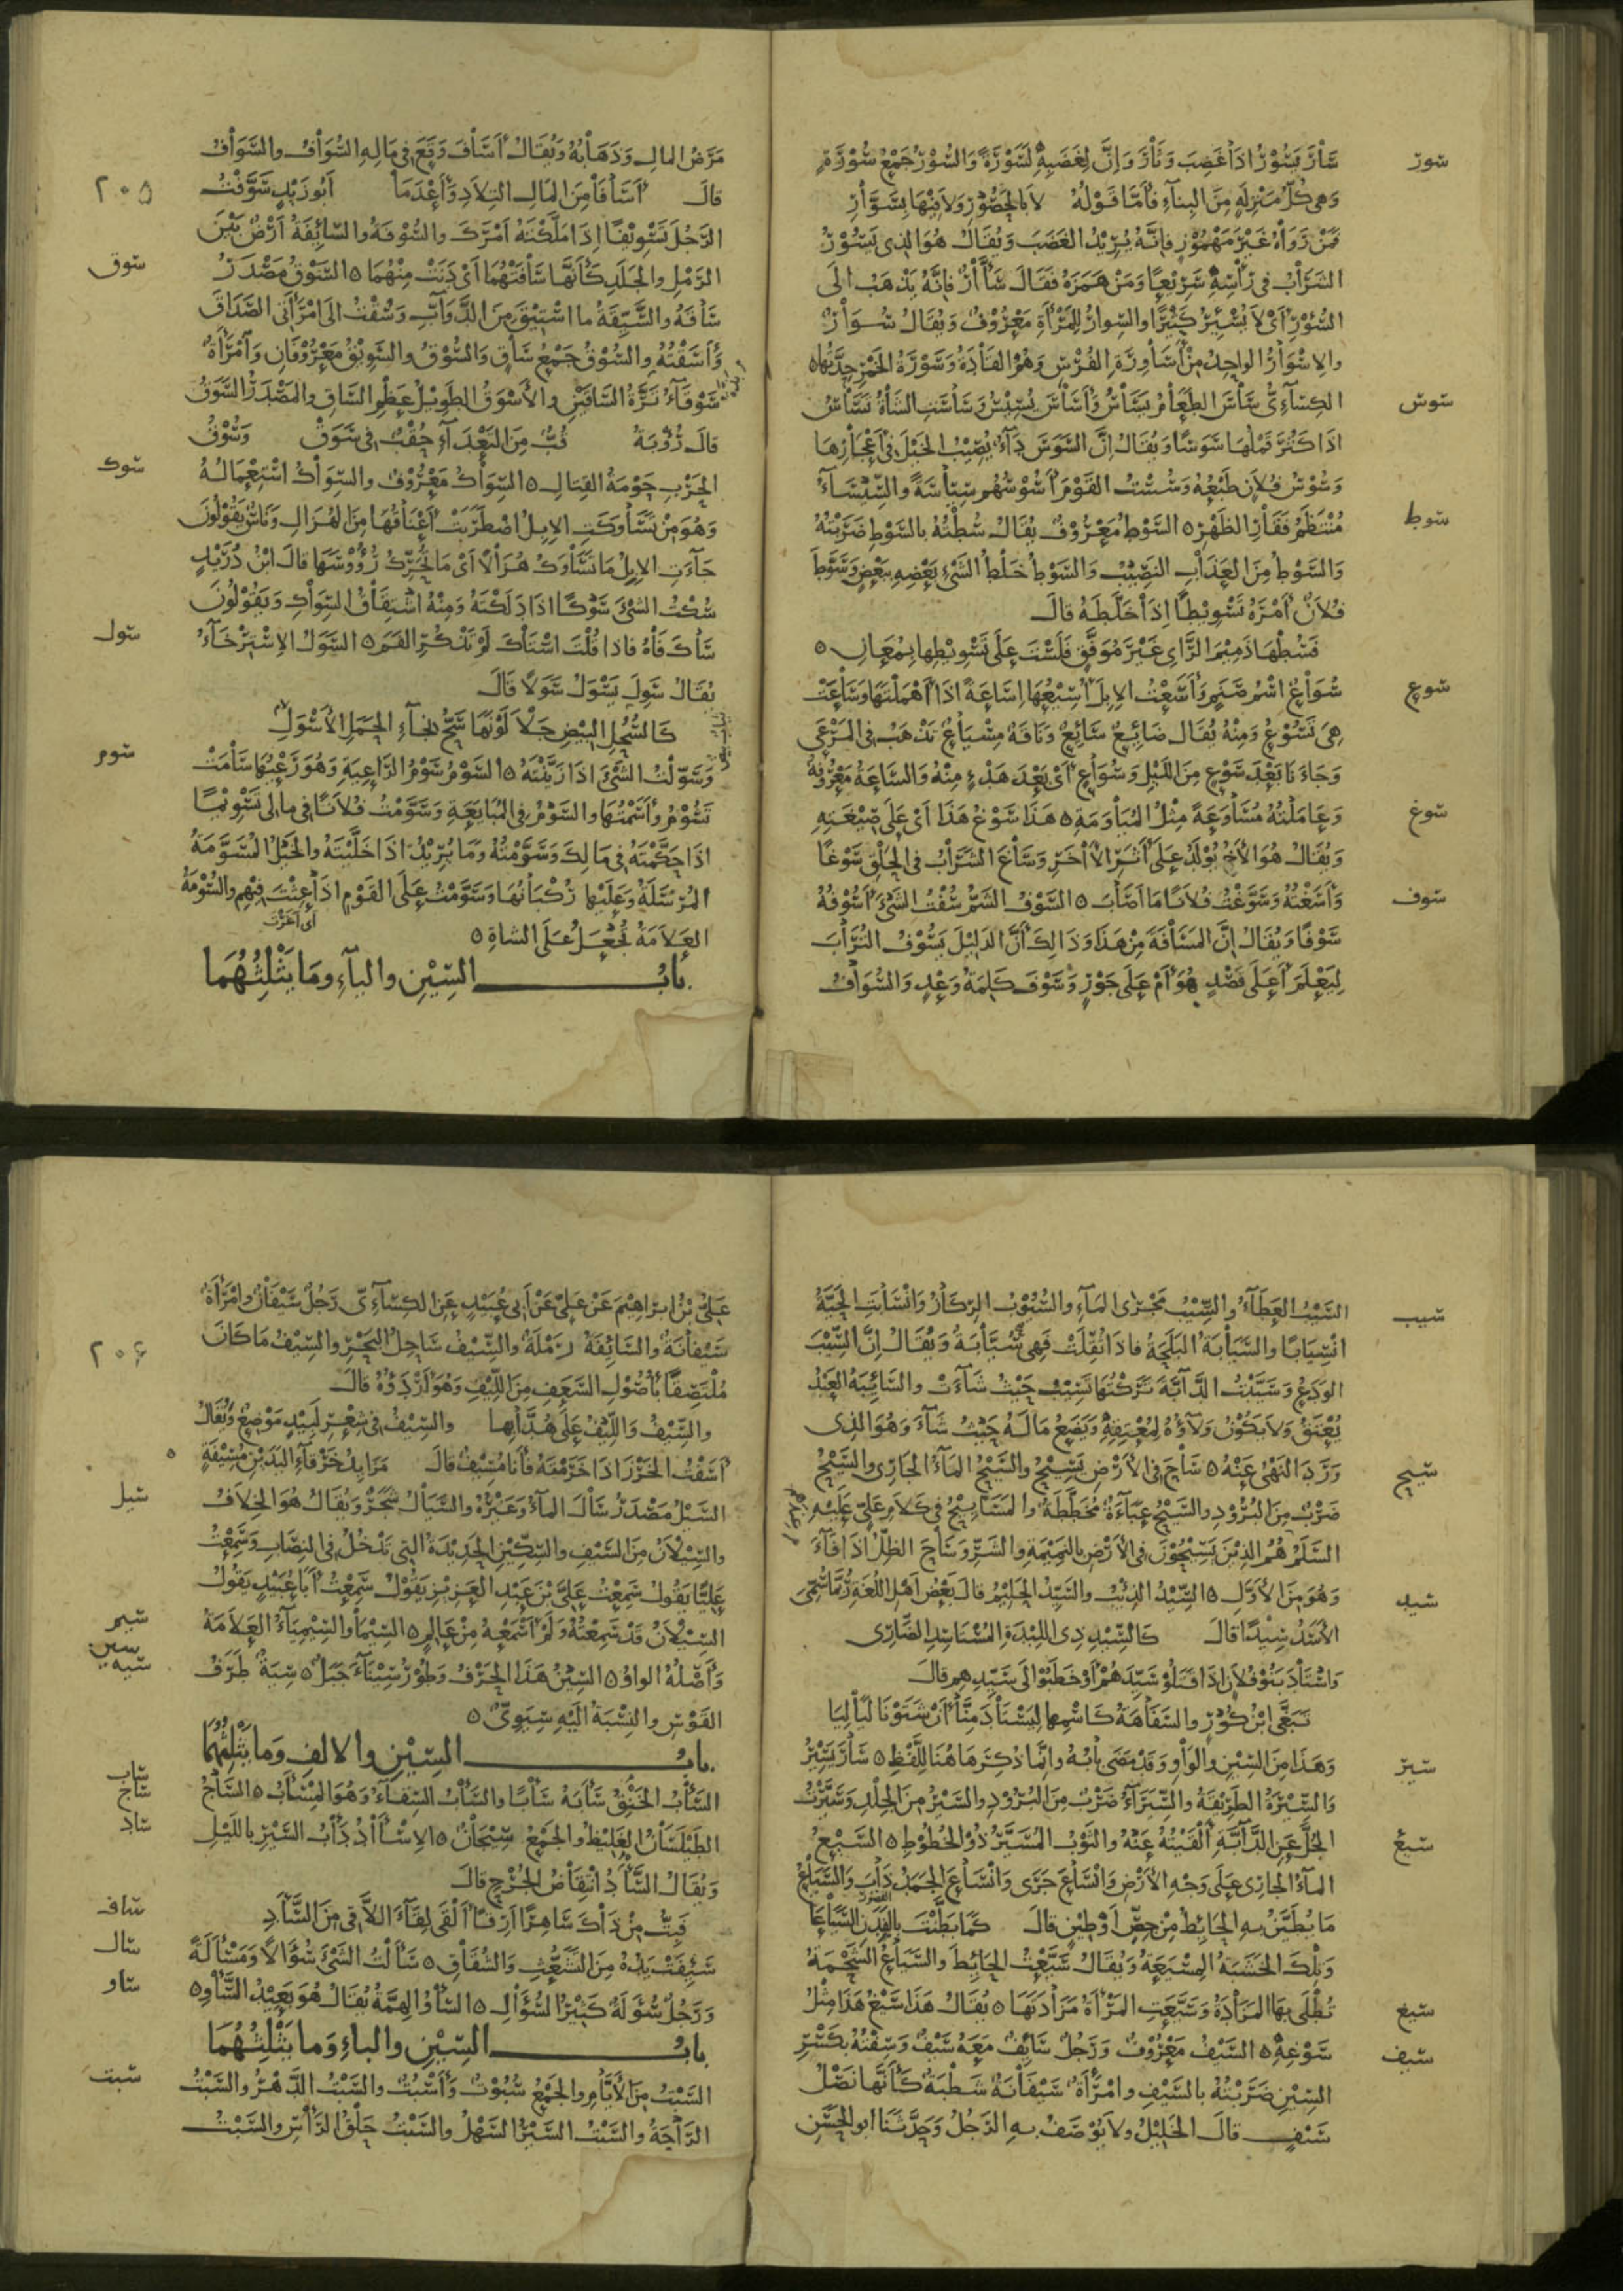 سور
سَارَ يَسُوْرُ اذَا غَضِبَ وَثَارَ وَاِنَّ لِغَضَبِهِ لَسَوْرَةً وَالسُّوْرُ جَمْعُ سُوْرَةٍ
وَهى كُلُّ مَنْزِلَةٍ مِنَ البِنَآءِ فَأَمَّا قَوْلُهُ لَا بِالحَصُوْرِ وَلَا فِيْهَا بِسَوَّارِ
فَمَنْ رَوَاهُ غَيْرَ مَهْمُوْزٍ فاِنَّهُ يُرِيْدُ الغَضَبَ وَيُقَالُ هُوَ الذى يَسُوْرُ
الشَّرَابُ فى رَأْسِهِ سَرِيْعًا وَمَنْ هَمَزَهُ فَقَالَ سَأَّارٌ فاِنَّهُ يَذْهَبُ الَى
السُّؤْرِ اَىْ لَا يُسْئِرُ كَثِيْرًا والسِوارُ لِلمَرْأَةِ مَعْرُوْفٌ وَيُقَالُ سُوَارٌ
والاِسْوَارُ الواحِدُ مِنْ أَسَاوِرَةِ الفُرْسِ وَهُمُ القَادَةُ وَسَوْرَةُ الخَمْرِ حِدَّتُهَا ٥
سوس
الكِسَآءِىُّ سَاسَ الطَعَامُ يَسَاسُ وَأَسَاسَ يُسِيْسُ وَسَاسَتِ الشَاةُ تَسَاسُ
اذَا كَثُرَ قَمْلُهَا سَوَسًا وَيُقَالُ اِنَّ السَّوَسَ دَآءٌ يُصِيْبُ الخَيْلَ فى أَعْجَازِهَا
وَسُوْسُ فُلَانٍ طَبْعُهُ وَسُسْتُ القَوْمَ أَسُوْسُهُم سِيَاسَةً والسِّيْسَآءُ
سوط
مُنْتَظَمُ فَقَارِ الظَهْرِ ٥ السَّوْطُ مَعْرُوْفٌ يُقَالُ سُطْتُهُ بالسَّوْطِ ضَرَبْتُهُ
وَالسَّوْطُ مِنَ العَذَابِ النَصِيْبُ وَالسَّوْطُ خَلْطُ الشَىْءِ بَعْضِهِ بِبَعْضٍ وَسَوَّطَ
فُلَانٌ أَمْرَهُ تَسْوِيْطًا اِذَا خَلَّطَهُ قالَ
فَسُطْهَا ذَمِيْمَ الرَّاىِ غَيْرَ مُوَفَّقٍ فَلَسْتَ عَلَى تَسْوِيْطِهَا بِمُعَانِ ٥
سوع
سُوَاعٌ اسْمُ صَنَمٍ وَأَسَعْتُ الاِبِلَ أُسِيْعُهَا اِسَاعَةً اذَا أَهْمَلْتَهَا وَسَاعَتْ
هِىَ تَسُوْعُ وَمِنْهُ يُقَالُ ضَائِعٌ سَائِعٌ وَنَاقَةٌ مِسْيَاعٌ تَذْهَبُ فى المَرْعَى
وَجَاءَ نَا بَعْدَ سَوْعٍ مِنَ اللَيْلِ وَسُوَاعٍ أَىْ بَعْدَ هَدْءٍ مِنْهُ وَالسَّاعَةُ مَعْرُوْفَةٌ
سوغ
وَعَامَلْتُهُ مُسَاوَعَةً مِثْلُ المُيَاوَمَةِ ٥ هَذَا سَوْغُ هَذَا أَىْ عَلَى صِيْغَتِهِ
وَيُقَالُ هُوَ الأَخُ يُوْلَدُ عَلَى أَثَرِ الآخَرِ وَسَاغَ الشَرَابُ فى الحَلْقِ سَوْغًا
سوف
وَأَسَغْتُهُ وَسَوَّغْتُ فُلَانًا مَا أَصَابَ ٥ السَّوْفُ الشَمُّ سُفْتُ الشَىْءَ أَسُوْفُهُ
سَوْفًا وَيُقَالُ اِنَّ المَسَافَةَ مِنْ هَذَا وَذَالِكَ أَنَّ الدَلِيْلَ يَسُوْفُ التُرَابَ
لِيَعْلَمَ أَعَلَى قَصْدٍ هُوَ أَمْ عَلَى جَوْرٍ وَسَوْفَ كَلِمَةُ وَعْدٍ وَالسُّوَافُ
مَرَضُ المالِ وَذَهَابُهُ وَيُقَالُ أَسَافَ وَقَعَ فى مَالِهِ السُّوَافُ والسَّوَافُ
٢٠٥
قالَ أَسَافَا مِنَ المَالِ التِلَادِ وَأَعْدَمَا أَبُو زَيْدٍ سَوَّفْتُ
الرَّجُلَ تَسْوِيْفًا اِذَا مَلَّكْتَهُ أَمْرَكَ والسُّوْفَةُ والسَّائِفَةُ أَرْضٌ بَيْنَ
سوق
الرَمْلِ والجَلَدِ كَأَنَّهَا سَافَتْهُمَا أَىْ دَنَتْ مِنْهُمَا ٥ السَّوْقُ مَصْدَرُ
سَاقَهُ والسَّيِّقَةُ ما اسْتِيْقَ مِنَ الدَّوَابِّ وَسُقْتُ الَى امْرَأَتِى الصَّدَاقَ
وَأَسَقْتُهُ والسُّوْقُ جَمْعُ سَاقٍ وَالسُّوْقُ والسَّوِيْقُ مَعْرُوْفَانِ وَأمْرَأَةٌ
سَوْقَآءُ تَرَّةُ السَّاقَيْنِ والأَسْوَقُ الطَوِيْلُ عَظْمِ السَّاقِ والمَصْدَرُ السَّوَقُ
قالَ رُؤْبَةُ قُبٌّ مِنَ التَعْدَآءِ حُقْبٌ فى سَوَقْ وَسُوْقُ
سوك
الحَرْبِ حَوْمَةُ القِتَالِ ٥ السِّوَاكُ مَعْرُوْفٌ والسِّوَاكُ اسْتِعْمَالُهُ
وَهُوَ مِنْ تَسَاوَكَتِ الاِبِلُ اضْطَرَبَتْ أَعْنَاقُهَا مِنَ الهُزَالِ وَنَاسٌ يَقُوْلُوْنَ
جَآءَتِ الاِبِلُ مَا تَسَاوَكُ هُزَالًا أَىْ مَا تُحَرِّكُ رُؤُوْسَهَا قالَ ابْنُ دُرَيْدٍ
سُكْتُ الشَىْءَ سَوْكًا اذَا دَلَكْتَهُ وَمِنْهُ اشْتِقَاقُ السِّوَاكِ وَيَقُوْلُوْنَ
سول
سَاكَ فَاهُ فاذا قُلْتَ اسْتَاكَ لَمْ تَذْكُرِ الفَمَ ٥ السَّوَلُ الاِسْتِرْخَآءُ
يُقَالُ سَوِلَ يَسْوَلُ سَوَلًا قالَ
كَالسُّحُلِ البِيْضِ جَلَا لَوْنَهَا سَحُّ نِجَآءِ الحَمَلِ الأَسْوَلِ
سوم
وَسَوَّلْتُ الشَّىْءَ اذَا زَيَّنْتَهُ ٥ السَّوْمُ سَوْمُ الرَّاعِيَةِ وَهُوَ رَعْيُهَا سَامَتْ
تَسُوْمُ وَأَسَمْتُهَا والسَّوْمُ فى المُبَايَعَةِ وَسَوَّمْتُ فُلَانًا فى ما لى تَسْوِيْمًا
اذَا حَكَّمْتَهُ فى مَالِكَ وَسَوَّمْتُهُ وَمَا يُرِيْدُ اذَا خَلَّيْتَهُ والخَيْلُ المُسَوَّمَةُ
المُرْسَلَةُ وَعَلَيْهَا رُكْبَانُهَا وَسَوَّمْتُ عَلَى القَوْمِ اذَا عِثْتَ فِيْهِم والسُّوْمَةُ
أى أغرت
العَلَامَةُ تُجْعَلُ عَلَى الشاةِ ٥
بابُ السِّيْنِ واليآءِ ومَا يَثْلِثُهُمَا
سيب
السَّيْبُ العَطَآءُ والسِّيْبُ مَجْرَى المَآءِ والسُّيُوْبُ الرِكَازُ وَانْسَابَتِ الحَيَّةُ
انْسِيَابًا والسَّيَابَةُ البَلَحَةُ فاذَا ثُقِّلَتْ فَهِىَ سُيَّابَةٌ وَيُقَالُ اِنَّ السَّيْبَ
الوَدَعُ وَسَيَّبْتُ الدَّآبَّةَ تَرَكْتُهَا تَسِيْبُ حَيْثُ شَآءَتْ والسَّائِبَةُ العَبْدُ
يُعْتَقُ وَلَا يَكُوْنُ وَلَآؤُهُ لِمُعْتِقِهِ وَيَضَعُ مَالَهُ حَيْثُ شَآءَ وَهُوَ الذِى
سيح
وَرَدَ النَهْىُ عَنْهُ ٥ سَاحَ فى الأَرْضِ يَسِيْحُ والسَّيْحُ المَآءُ الجَارِى والسَّيْحُ
ضَرْبٌ مِنَ البُرُوْدِ والسَّيْحُ عَبَاءَةٌ مُخَطَّطَةٌ والمَسَايِيْحُ فى كَلَامِ عَلِىٍّ عَلَيْهِ
السَّلَمُ هُمُ الذِيْنَ يَسِيْحُوْنَ فى الأَرْضِ بالنَمِيْمَةِ والشَرِّ وَسَاحَ الظِلُّ اذَا فَآءَ
سيد
وَهُوَ مِنَ الأَوَّلِ ٥ السِّيْدُ الذِئْبُ والسَّيِّدُ الحَلِيْمُ قالَ بَعْضُ أَهْلِ اللُغَةِ رُبَّمَا سُمِّىَ
الأَسَدُ سِيْدًا قالَ كَالسِّيْدِ ذِى اللِبْدَةِ المُسْتَأْسِدِ الضَّارِى
وَاسْتَادَ بَنُو فُلَانٍ اذَا قَتَلُوْ سَيِّدَهُمْ أَوْ خَطَبُوْا الَى سَيِّدِهِم قالَ
تَبَغَّى ابْنُ كُوْزٍ والسَّفَاهَةُ كَاسْمِهَا لِيَسْتَادَ مِنَّا أَنْ شَتَوْنَا لَيَالِيَا
سير
وَهَذَا مِنَ السِّيْنِ والوَاوِ وَقَدْ مَضَى بَابُهُ وانَّمَا ذُكِرَ هَاهُنَا لِلَّفْظِ ٥ سَارَ يَسِيْرُ
وَالسِّيْرَةُ الطَرِيْقَةُ والسِّيَرَآءُ ضَرْبٌ مِنَ البُرُوْدِ والسَّيْرُ مِنَ الجِلْدِ وَسَيَّرْتُ
سيع
الجُلَّ عَنِ الدَّآبَّةِ أَلْقَيْتُهُ عَنْهُ والثَوْبُ المُسَيَّرُ ذُوْ الخُطُوْطِ ٥ السَّيْعُ
المآءُ الجَارِى عَلَى وَجْهِ الأَرْضِ وَانْسَاعَ جَرَى وَانْسَاعَ الجَمَدُ ذَابَ وَالسَّيَاعُ
مَا يُطَيَّنُ بِهِ الحَائِطُ مِنْ جِصٍّ أَوْ طِيْنٍ قالَ كَمَا بَطَّنْتَ بِالفَدَنِ السَّيَاعَا
وَتِلْكَ الخَشَبَةُ المِسْيَعَةُ وَيُقَالُ سَيَّعْتُ الحَائِطَ والسَّيَاعُ الشَّحْمَةُ
سيغ
تُطْلَى بِهَا المَزَادَةُ وَسَيَّعَتِ المَرْأَةُ مَزَادَتَهَا ٥ يُقَالُ هَذَا سَيْغُ هَذَا مِثْلُ
سيف
سَوْغِهِ ٥ السَّيْفُ مَعْرُوْفٌ وَرَجُلٌ سَايِفٌ مَعَهُ سَيْفٌ وَسِفْتُهُ بِكَسْرِ
السِّيْنِ ضَرَبْتُهُ بالسَّيْفِ وامْرَأَةٌ سَيْفَانَةٌ شَطْبَةٌ كَأَنَّهَا نَصْلُ
سَيْفٍ قالَ الخَلِيْلُ ولَا يُوْصَفُ بِهِ الرَجُلُ وَحَدَّثَنَا ابو الحَسَنِ
عَلِىُّ بْنُ اِبْرَاهِيْمَ عَنْ عَلِىٍّ عَنْ أَبِى عُبَيْدٍ عَنِ الكِسَآءِىِّ رَجُلٌ سَيْفَانٌ وامْرَأَةٌ
٢٠٦
سَيْفَانَةٌ والسَّائِفَةُ رَمْلَةٌ والسِّيْفُ سَاحِلُ البَحْرِ والسِّيْفُ مَا كَانَ
مُلْتَصِقًا بِأُصُوْلِ السَّعَفِ مِنَ اللِّيْفِ وَهُوَ أَرْدَؤُهُ قالَ
والسِّيْفُ وَاللِّيْفُ عَلَى هُدَّابِهَا والسِّيْفُ فى شِعْرِ لَبِيْدٍ مَوْضِعٌ وَيُقَالُ
أَسَفْتُ الخَرْزَ اذَا خَرَمْتَهُ فَأَنَا مُسِيْفٌ قالَ مَزَايِدُ خَرْقَآءِ اليَدَيْنِ مُسِيْفَةٍ
سيل
السَّيْلُ مَصْدَرُ سَالَ المآءُ وَغَيْرُهُ والسَّيَالُ شَجَرٌ وَيُقَالُ هُوَ الخِلَافُ
والسِّيْلَانُ مِنَ السَّيْفِ والسِّكِّيْنِ الحَدِيْدَةُ التِى تَدْخُلُ فى النِصَابِ وَسَمِعْتُ
عَلِيًّا يَقُولُ سَمِعْتُ عَلِىَّ بْنَ عَبْدِ العَزِيْزِ يَقُوْلُ سَمِعْتُ أَبَا عُبَيْدٍ يَقُوْلُ
سيم
السِّيْلَانُ قَدْ سَمِعْتُهُ وَلَمْ أَسْمَعْهُ مِنْ عَالِمٍ ٥ السِّيْمَا والسِّيْمِيَآءُ العَلَامَةُ
سين
سيه
وَأَصْلُهُ الواوُ ٥ السِّيْنُ هَذَا الحَرْفُ وَطُوْرُ سِيْنَآءَ جَبَلٌ ٥ سِيَةُ طَرَفُ
القَوْسِ والنِسْبَةُ الَيْهِ سِيَوِىٌّ ٥
بابُ السِّيْنِ والالفِ وَمَا يَثْلِثُهُمَا
سأب
ساج
السَّأْبُ الخَنْقُ سَأَبَهُ سَأْبًا والسَّأْبُ السِّقَآءُ وَهُوَ المِسْأَبُ ٥ السَّاجُ
ساد
الطَيْلَسَانُ الغَلِيْظُ والجَمْعُ سِيْجَانٌ ٥ الاِسْأَادُ دَأْبُ السَّيْرِ باللَيْلِ
وَيُقَالُ السَّأْدُ انْتِقَاضُ الجُرْحِ قالَ
فَبِتُّ مِنْ ذَاكَ سَاهِرًا أَرِقًا أَلْقَى لِقَآءَ اللَّاقِى مِنَ السَّأَدِ
ساف
سال
سَئِفَتْ يَدُهُ مِنَ التَشَعُّثِ وَالشُقَاقِ ٥ سَأَلْتُ الشَىْءَ سُؤَالًا وَمَسْأَلَةً
ساو
وَرَجُلٌ سُؤَلَةٌ كَثِيْرُ السُّؤَالِ ٥ السَّأْوُ الهِمَّةُ يُقَالُ هُوَ بَعِيْدُ السَّأْوِ ٥
بابُ السِّيْنِ والباءِ وَما يَثْلِثُهُمَا
سبت
السَّبْتُ مِنَ الأَيَّامِ والجَمْعُ سُبُوْتٌ وَأَسْبُتٌ والسَّبْتُ الدَّهْرُ والسَّبْتُ
الرَّاحَةُ والسَّبْتُ السَّيْرُ السَّهْلُ والسَّبْتُ حَلْقُ الرَّأْسِ والسَّبْتُ